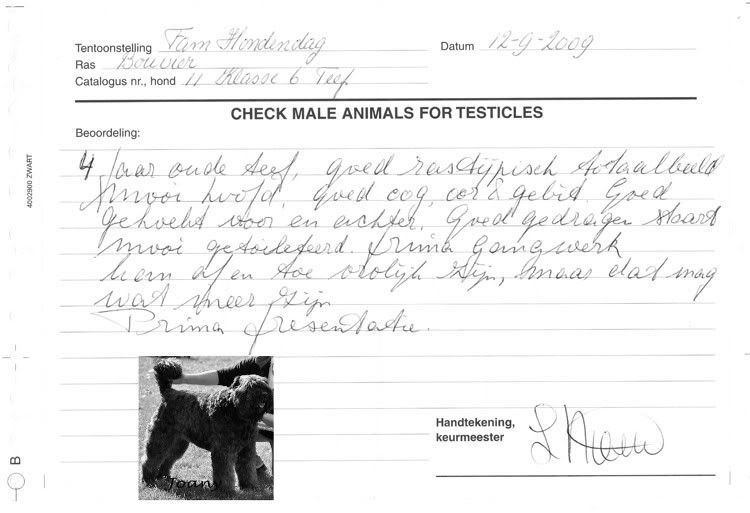 Tentoonstelling Fam Hondendag
Datum 12-9-2009
Ras Bouvier
Catalogus nr., hond 11 Klasse 6 Teef
CHECK MALE ANIMALS FOR TESTICLES
Beoordeling:
4 Jaar oude teef, goed rastypisch totaalbeeld
mooi hoofd, goed oog, oor & gebit. Goed
gehoekt voor en achter. Goed gedragen staart
mooi getoiletteerd. Prima gangwerk
kan af en toe vrolijk zijn, maar dat mag
wat meer zijn
Prima presentatie.
Joan
Handtekening,
keurmeester
4002900 ZWART
B